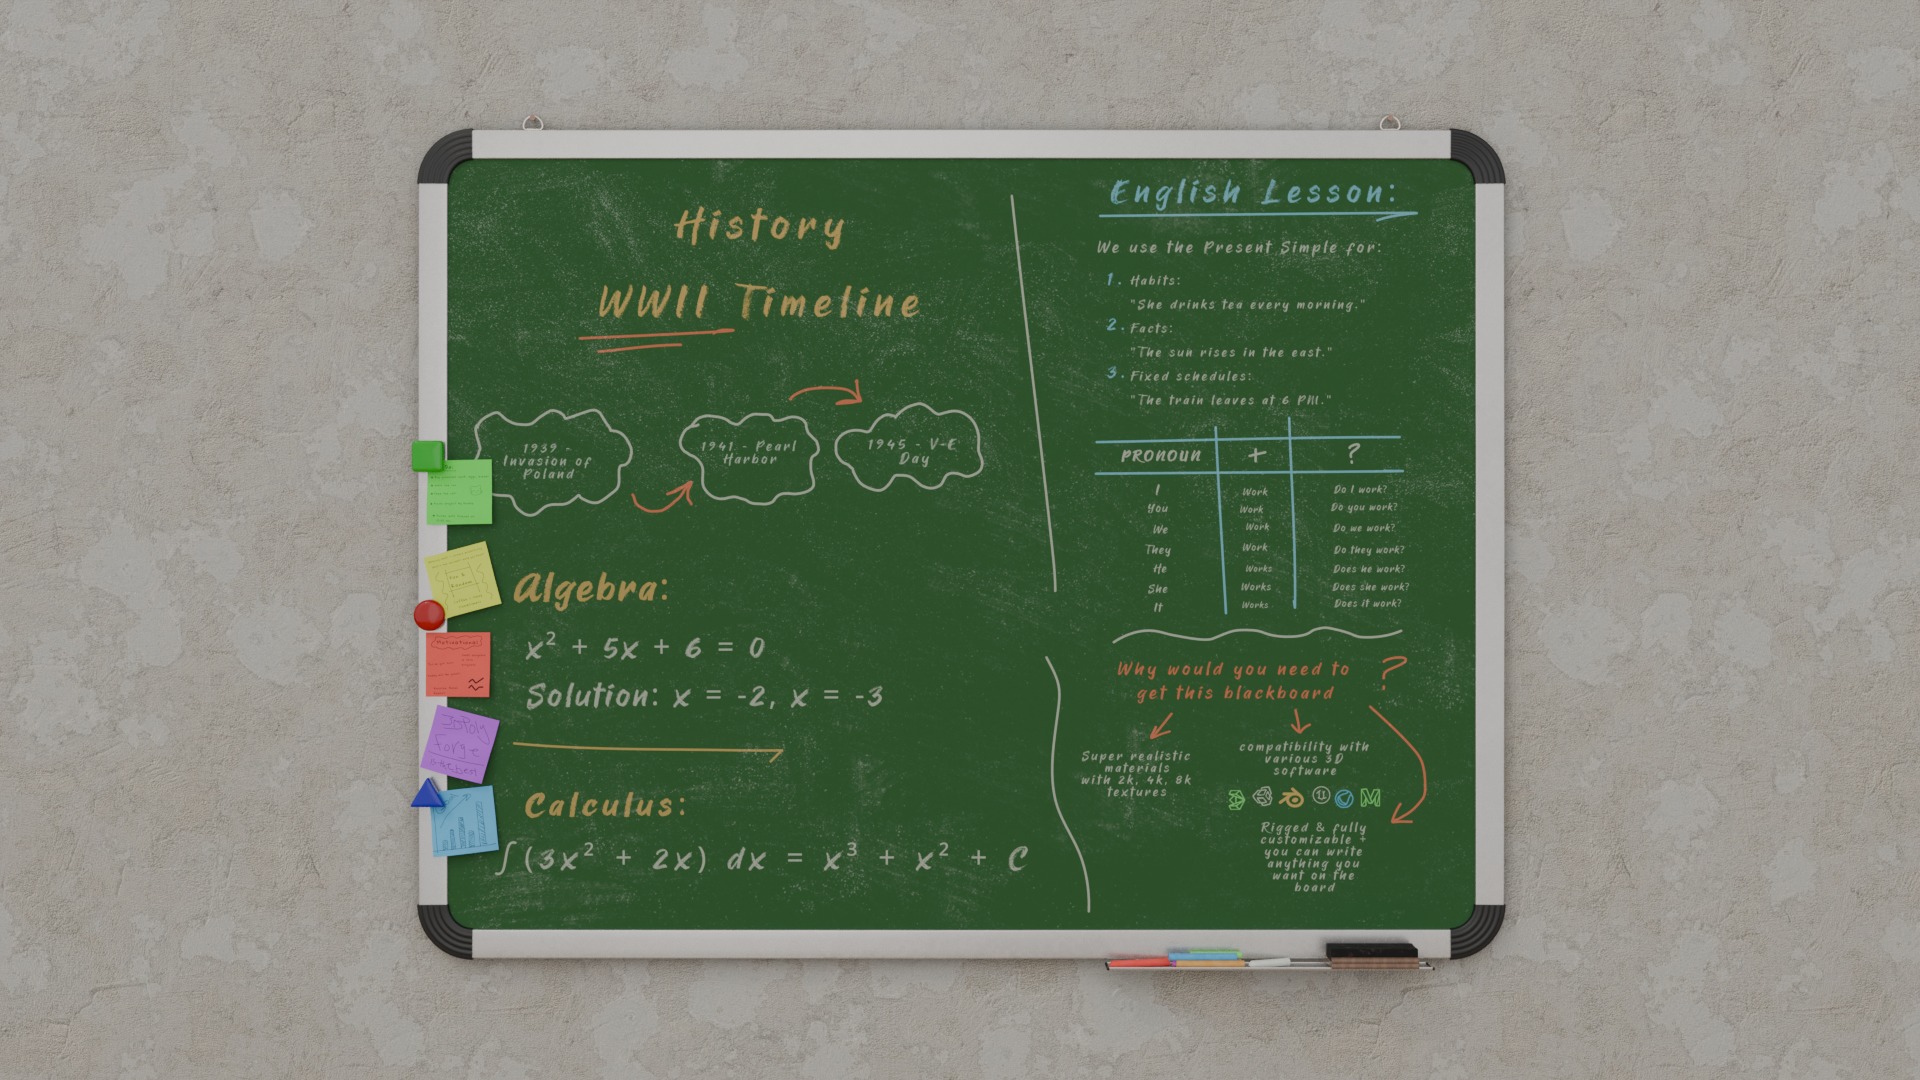 History
WWII Timeline
1939 -
Invasion of
Poland
1941 - Pearl
Harbor
1945 - V-E
Day
Algebra:
x² + 5x + 6 = 0
Solution: x = -2, x = -3
Calculus:
∫(3x² + 2x) dx = x³ + x² + C
English Lesson:
We use the Present Simple for:
1. Habits:
"She drinks tea every morning."
2. Facts:
"The sun rises in the east."
3. Fixed schedules:
"The train leaves at 6 PM."
PRONOUN + ?
I Work Do I work?
You Work Do you work?
We Work Do we work?
They Work Do they work?
He Works Does he work?
She Works Does she work?
It Works Does it work?
Why would you need to
get this blackboard ?
Super realistic
materials
with 2k, 4k, 8k
textures
compatibility with
various 3D
software
Rigged & fully
customizable +
you can write
anything you
want on the
board
Motivational
Forge